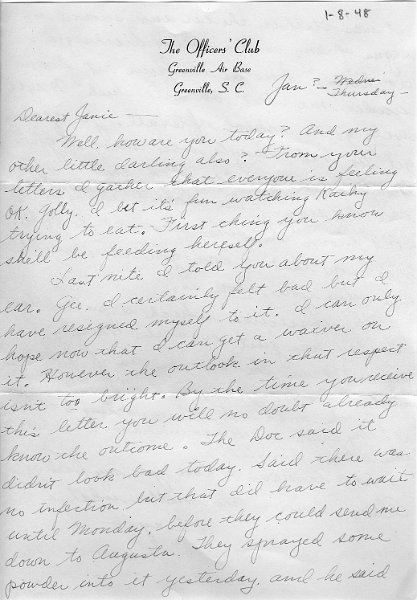 1-8-48
The Officers' Club
Greenville Air Base
Greenville, S. C.
Jan ? - Wednes
Thursday -
Dearest Janie -
Well, how are you today? And my
other little darling also? From your
letters I gather that everyone is feeling
OK. Golly, I bet it's fun watching Kathy
trying to eat. First thing you know
shell be feeding herself.
Last nite I told you about my
ear. Gee, I certainly felt bad but I
have resigned myself to it. I can only
hope now that I can get a waiver on
it. However the outlook in that respect
isn't too bright. By the time you receive
this letter you will no doubt already
know the outcome. The Doc said it
didn't look bad today. Said there was
no infection, but that I'd have to wait
until Monday, before they could send me
down to Augusta. They sprayed some
powder into it yesterday, and he said